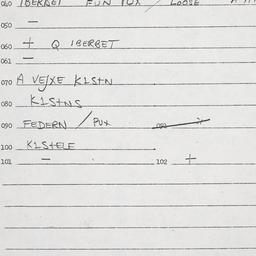 040 IBERBET FUN PUX / LOOSE
050 —
060 + Q IBERBET
061 —
070 A VEJXE K1S+N
080 K1S+NS
090 FEDERN / PUX
100 K1S+ELE
101 — 102 +